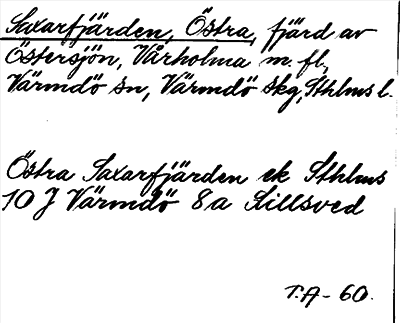 Saxarfjärden, Östra, fjärd av
Östersjön, Vårholma m. fl.,
Värmdö sn, Värmdö skg, Sthlms l.
Östra Saxarfjärden ek Sthlms
10 J Värmdö 8a Sillsved
T.A-60.